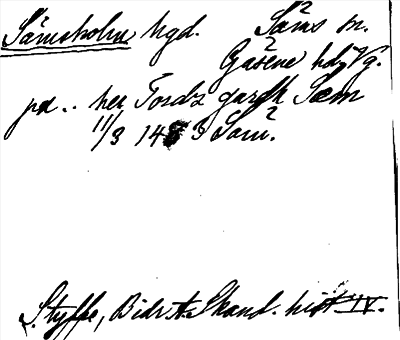 Sämsholm hgd. Säms sn.
Gäsene hd, Vg.
pa .. her Tordz gardh Sæm
11/3 1483 Sam.
Styffe, Bidr t. Skand. hist IV.